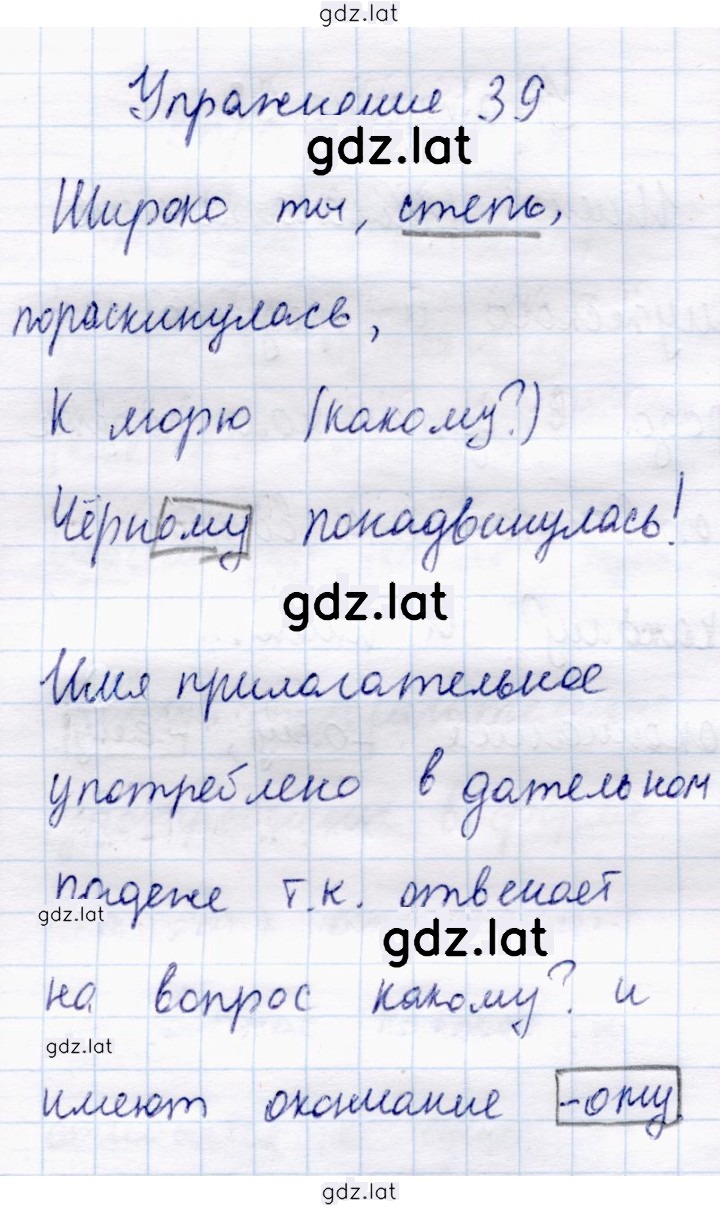 gdz.lat
Упражнение 39
gdz.lat
Широко ты, степь,
пораскинулась,
К морю (какому?)
Чёрному понадвинулась!
gdz.lat
Имя прилагательное
употреблено в дательном
падеже т.к. отвечает
gdz.lat
gdz.lat
на вопрос какому? и
gdz.lat
имеют окончание -ому.
gdz.lat